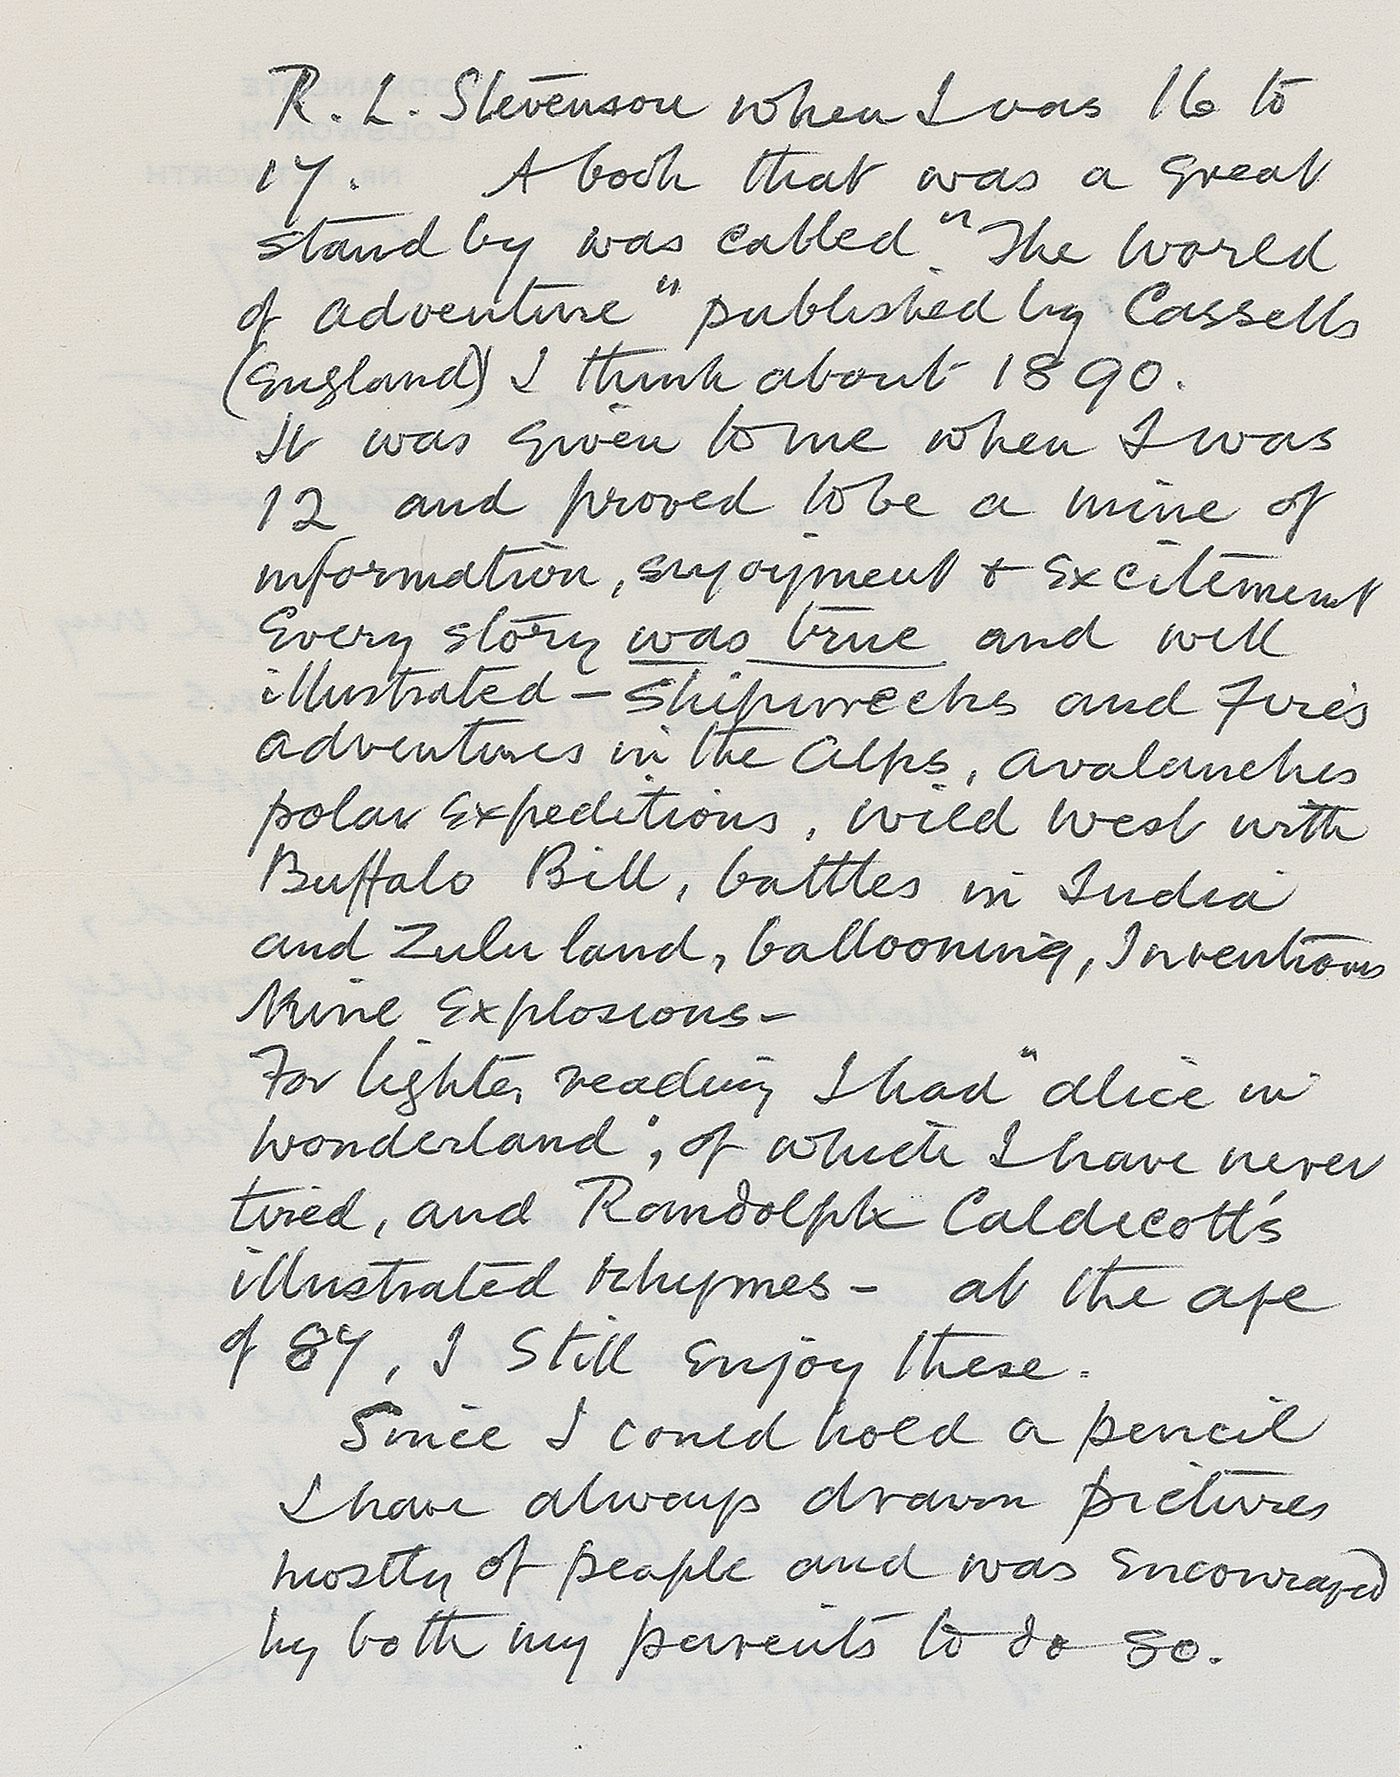 R. L. Stevenson when I was 16 to
17. A book that was a great
stand by was called "The World
of adventure" published by Cassells
(England) I think about 1890.
It was given to me when I was
12 and proved to be a mine of
information, enjoyment & excitement
Every story was true and well
illustrated – Shipwrecks and Fires
adventures in the Alps, avalanches
polar expeditions, wild west with
Buffalo Bill, battles in India
and Zululand, ballooning, Inventions
Mine Explosions –
For lighter reading I had "alice in
wonderland", of which I have never
tired, and Randolph Caldecott's
illustrated rhymes – at the age
of 87, I still enjoy these.
Since I could hold a pencil
I have always drawn pictures
mostly of people and was encouraged
by both my parents to do so.